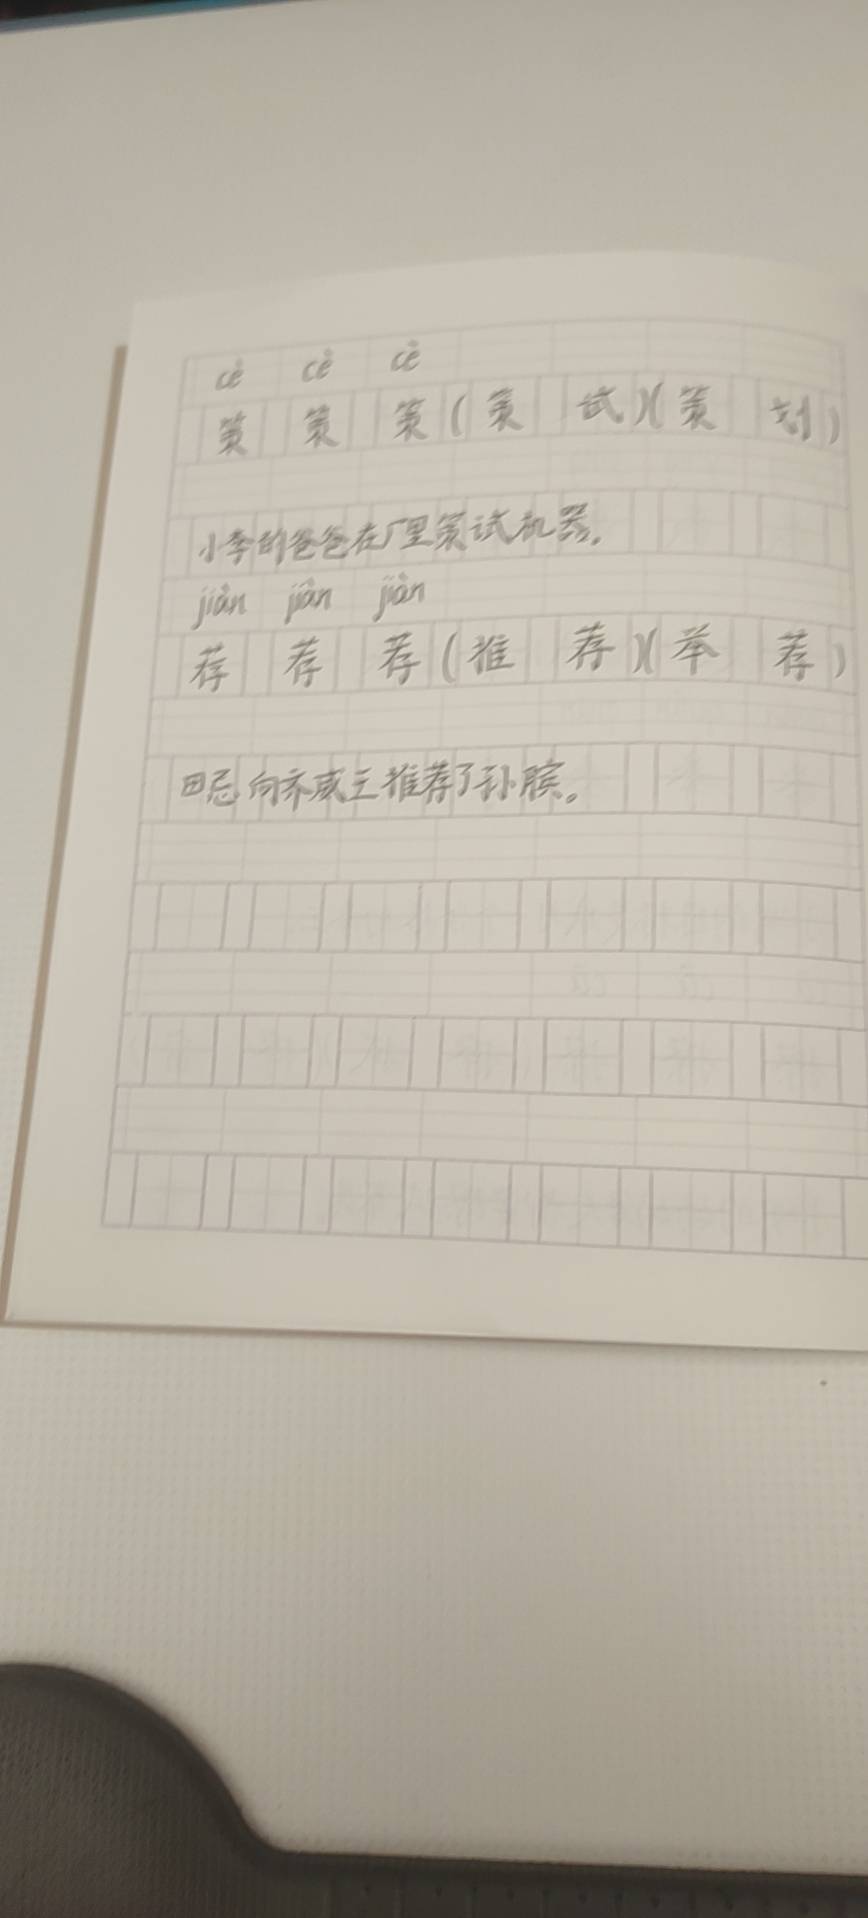 cè cè cè
策 策 策 (策 试)(策 划)
小李的爸爸在厂里策试机器。
jiàn jiàn jiàn
荐 荐 荐 (推 荐)(举 荐)
田忌向齐威王推荐了孙膑。